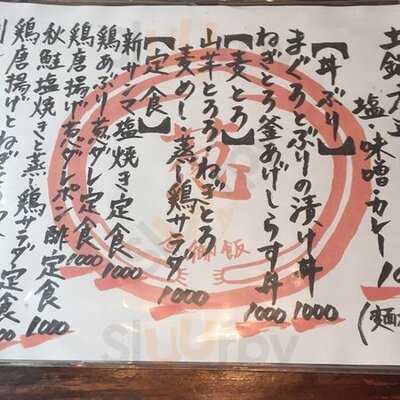 塩・味噌・カレー
(麺
【丼ぶり】
まぐろとぶりの漬け丼 1000
ねぎとろ釜あげしらす丼 1000
【麦とろ】
山芋とろろ、ねぎとろ
麦めし、蒸し鶏サラダ 1000
【定食】
新サンマ塩焼き定食 1000
鶏あぶり煮ダレ定食 1000
鶏唐揚げ葱ダレポン酢定食 1000
秋鮭塩焼きと蒸し鶏サラダ定食 1000
鶏唐揚げとねぎと
御飯
Sluurpy